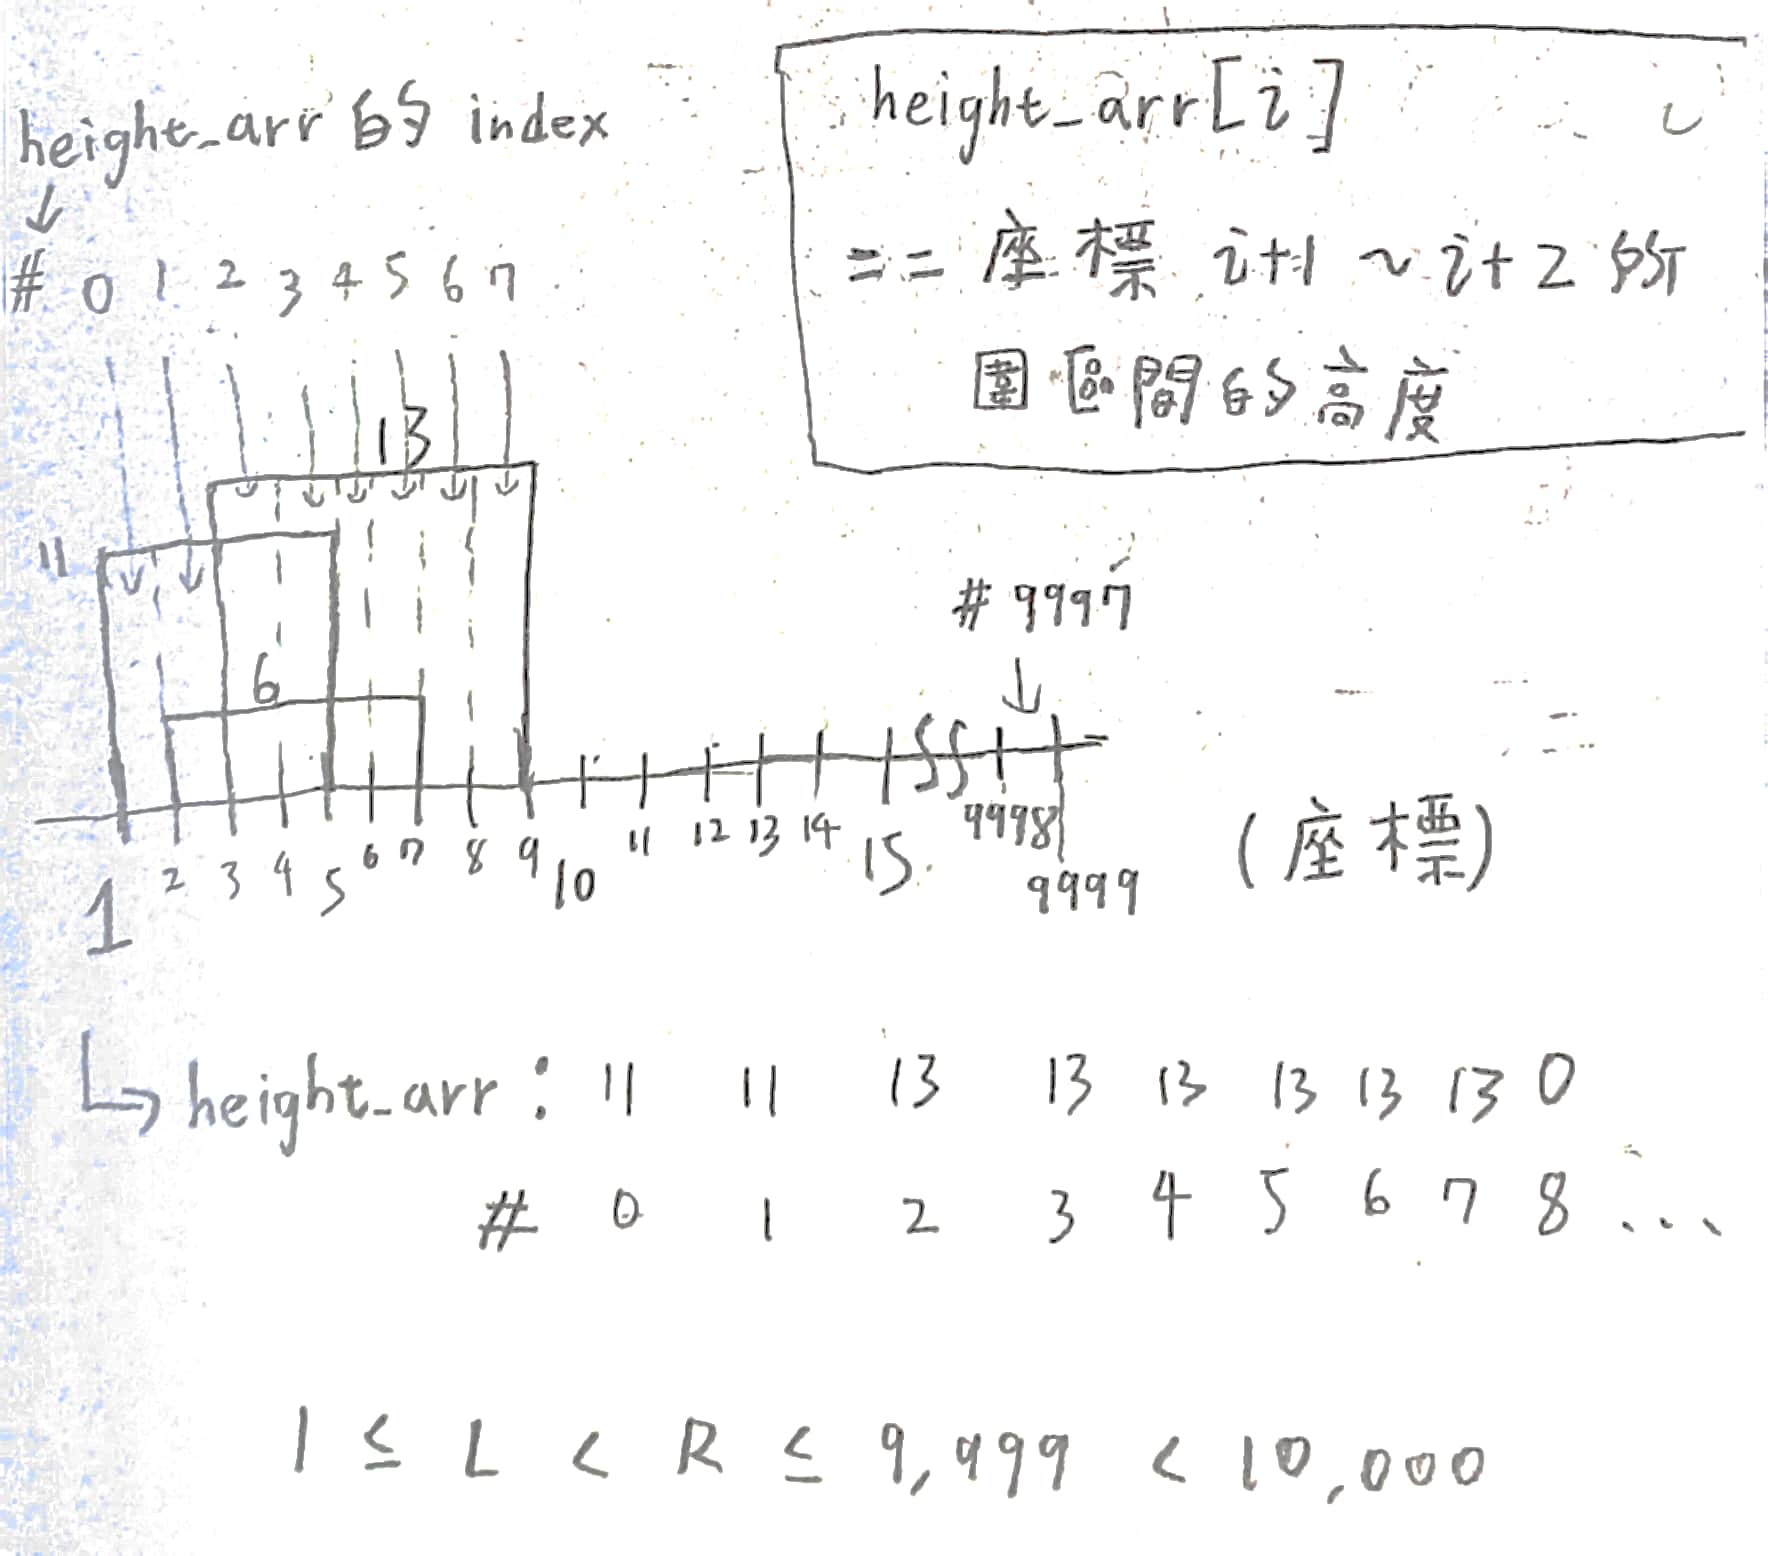 height_arr 的 index
↓
# 0 1 2 3 4 5 6 7
height_arr[i]
== 座標 i+1 ~ i+2 所
圍區間的高度
13
11
6
# 9997
↓
1 2 3 4 5 6 7 8 9 10 11 12 13 14 15 9998 9999
(座標)
↳ height_arr : 11 11 13 13 13 13 13 13 0
# 0 1 2 3 4 5 6 7 8 ...
1 ≤ L < R ≤ 9,999 < 10,000